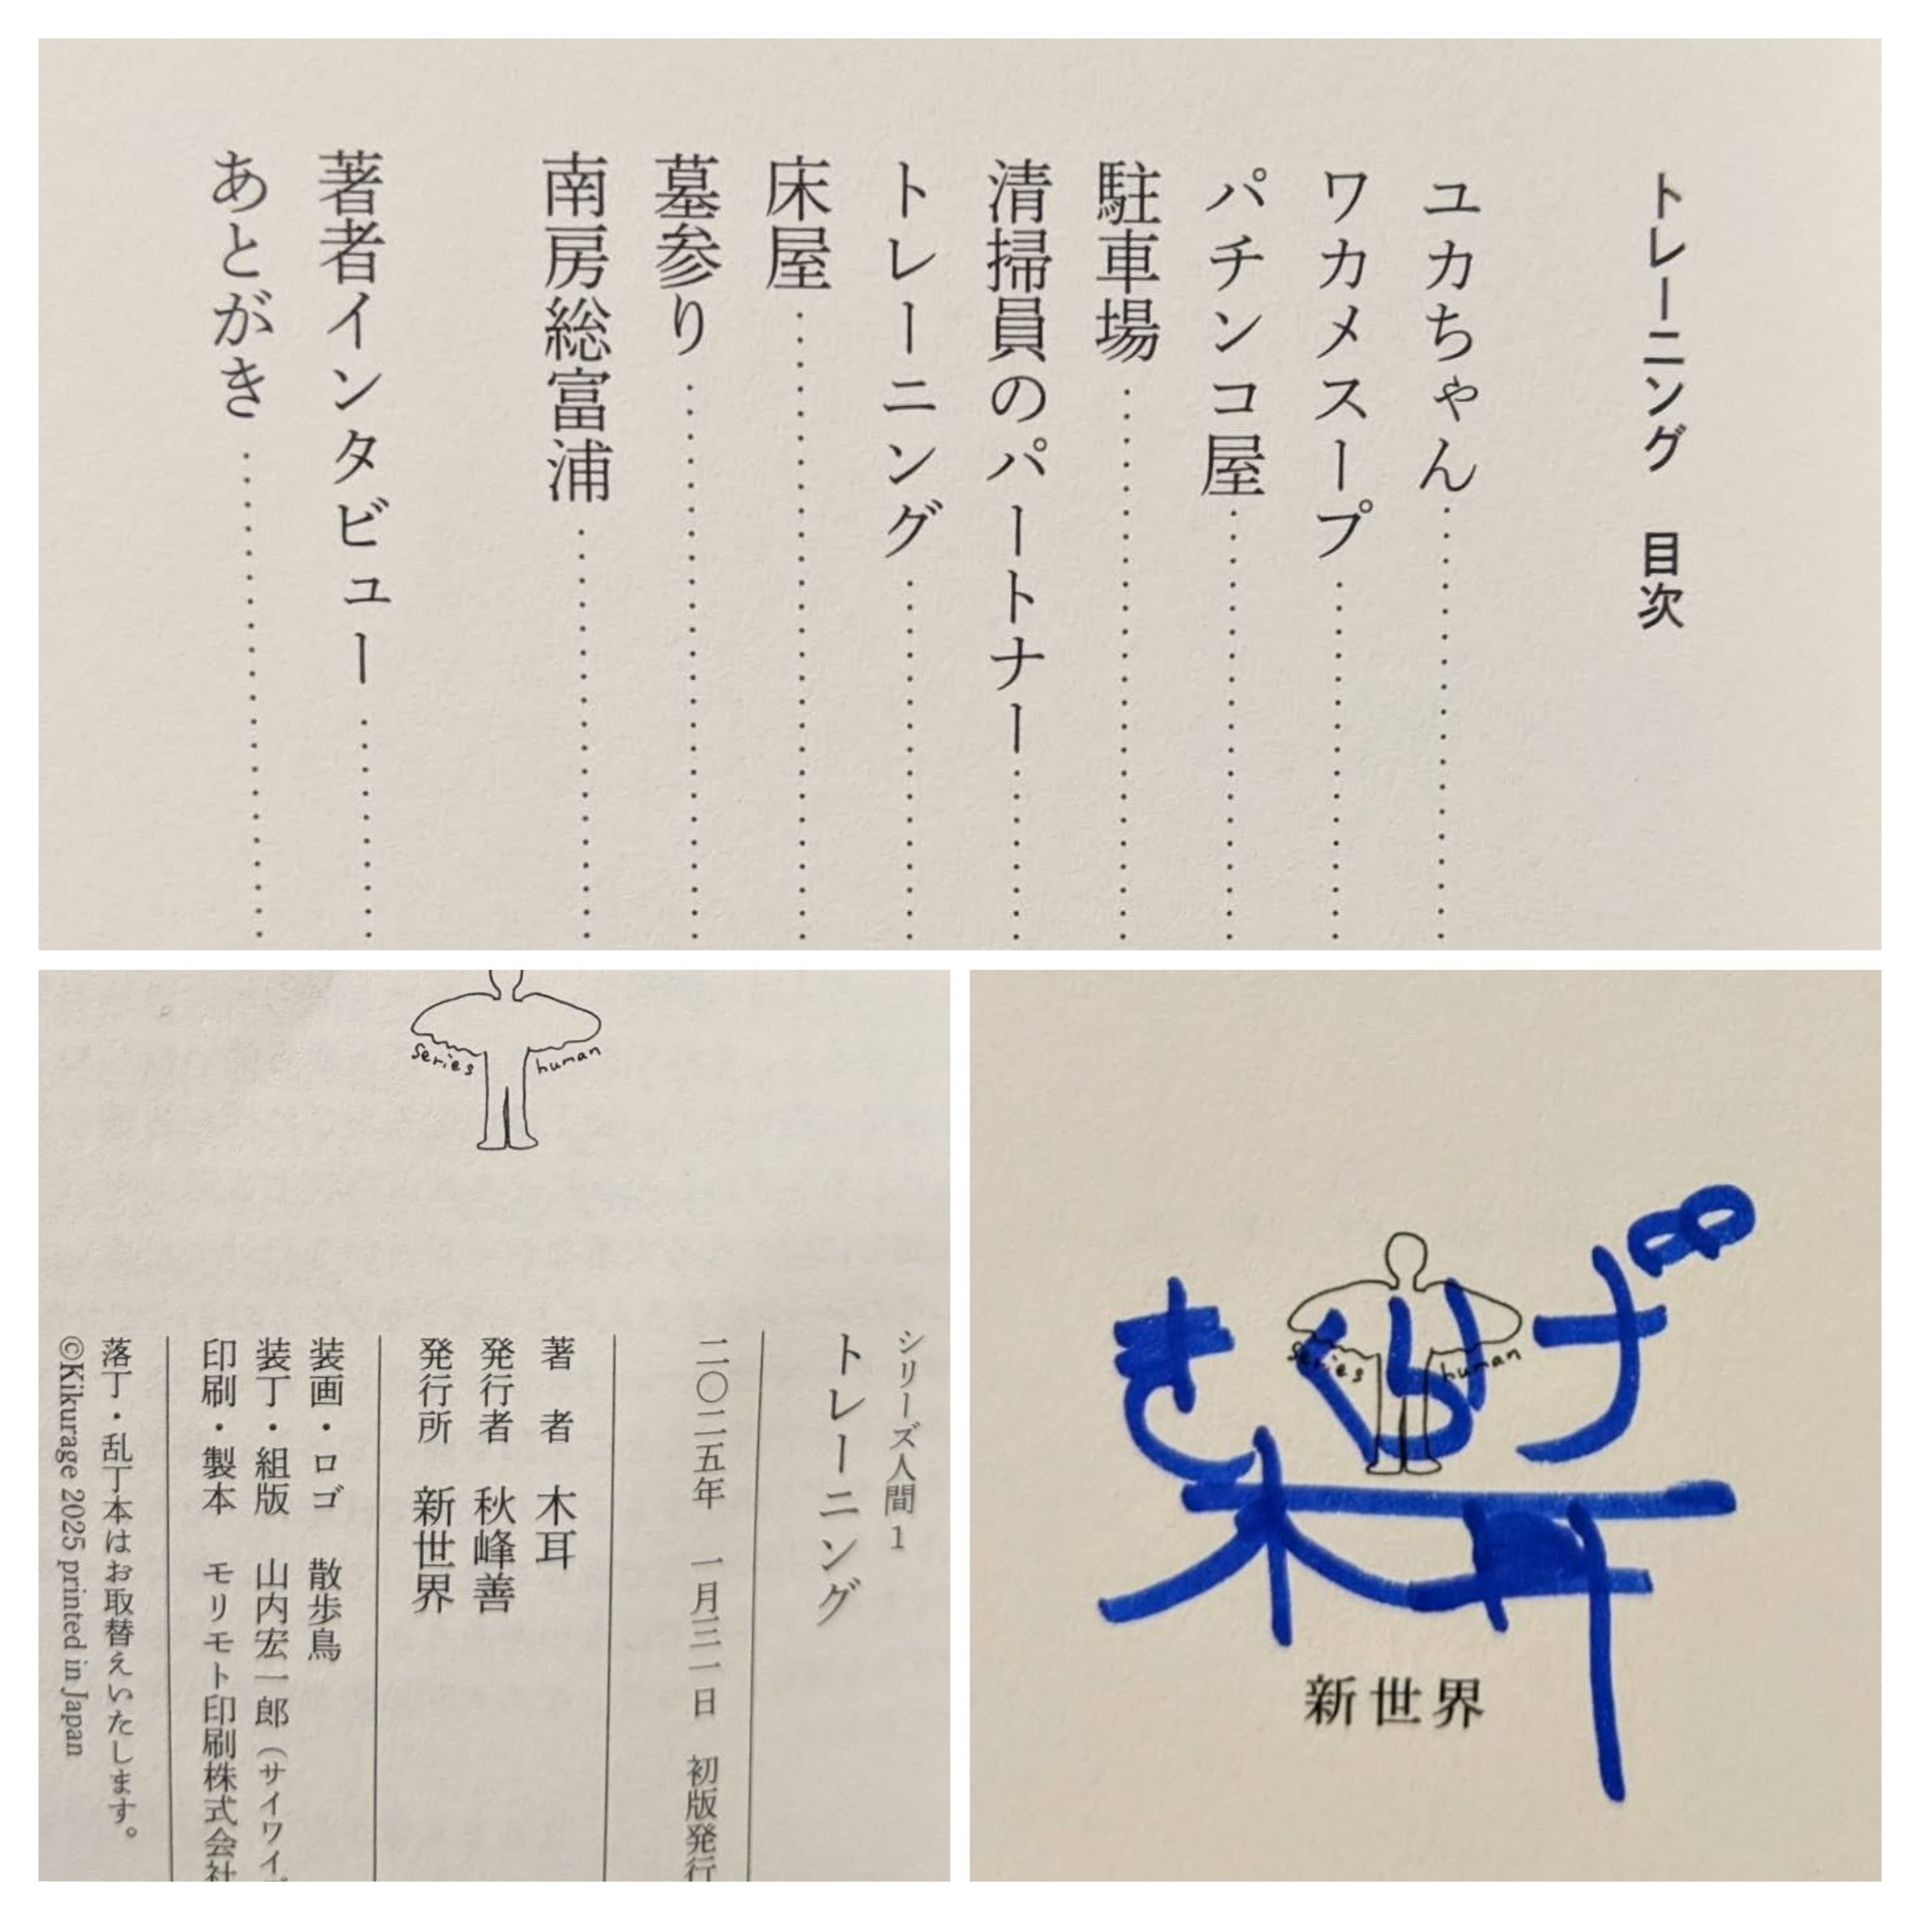 トレーニング　目次
ユカちゃん
ワカメスープ
パチンコ屋
駐車場
清掃員のパートナー
トレーニング
床屋
墓参り
南房総富浦
著者インタビュー
あとがき
series human
シリーズ人間1
トレーニング
二〇二五年　一月三一日　初版発行
著　者　木耳
発行者　秋峰善
発行所　新世界
装画・ロゴ　散歩鳥
装丁・組版　山内宏一郎（サイワイ
印刷・製本　モリモト印刷株式会社
落丁・乱丁本はお取替えいたします。
©Kikurage 2025 printed in Japan
きくらげ
木耳
series human
新世界